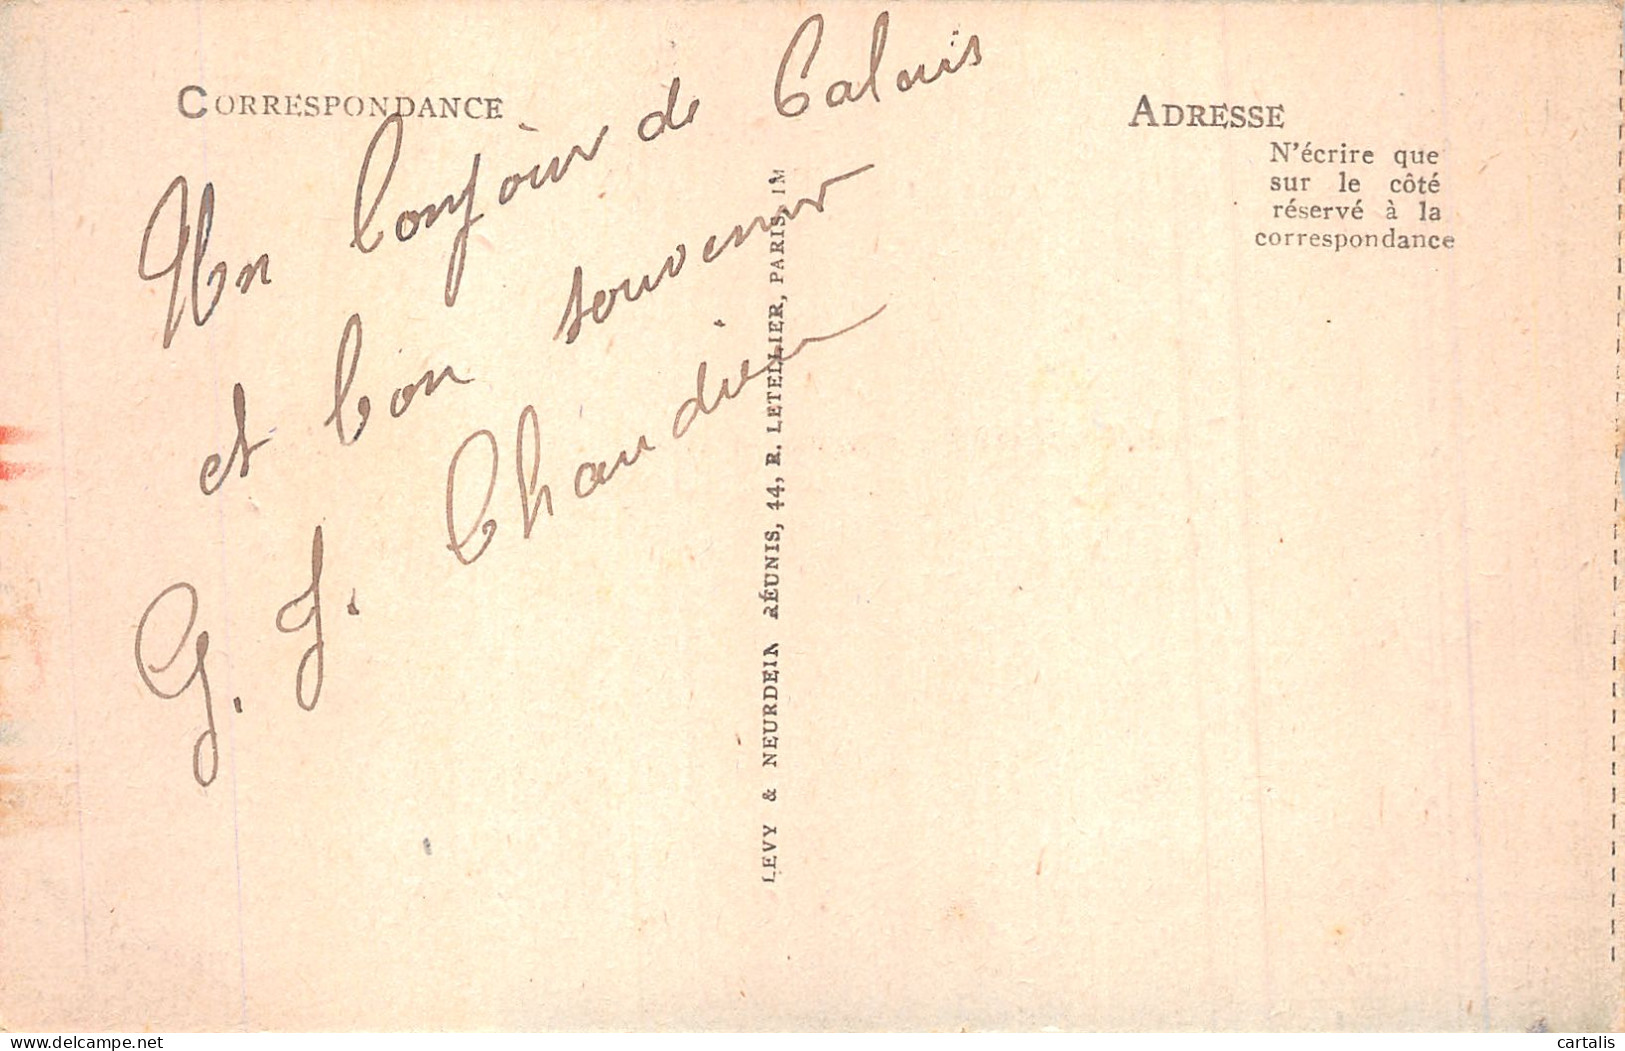 CORRESPONDANCE
Un bonjour de Calais
et bon souvenir
G. J. Chaudieu
LEVY & NEURDEIN RÉUNIS, 44, R. LETELLIER, PARIS, IM
ADRESSE
N'écrire que
sur le côté
réservé à la
correspondance
delcampe.net
cartalis